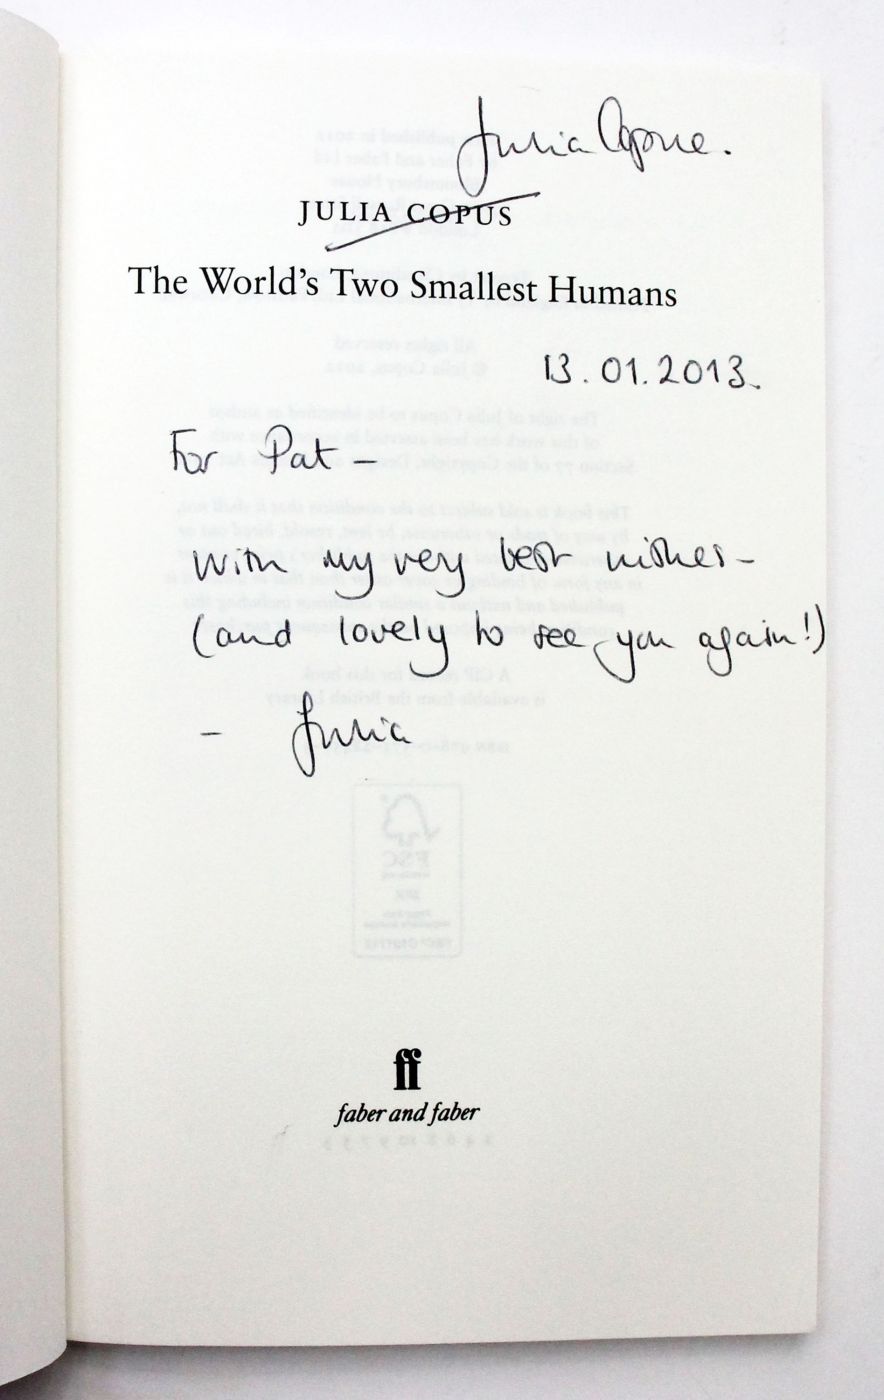 Julia Copus.
JULIA COPUS
The World's Two Smallest Humans
13.01.2013.
For Pat –
With my very best wishes –
(and lovely to see you again!)
– Julia
ff
faber and faber